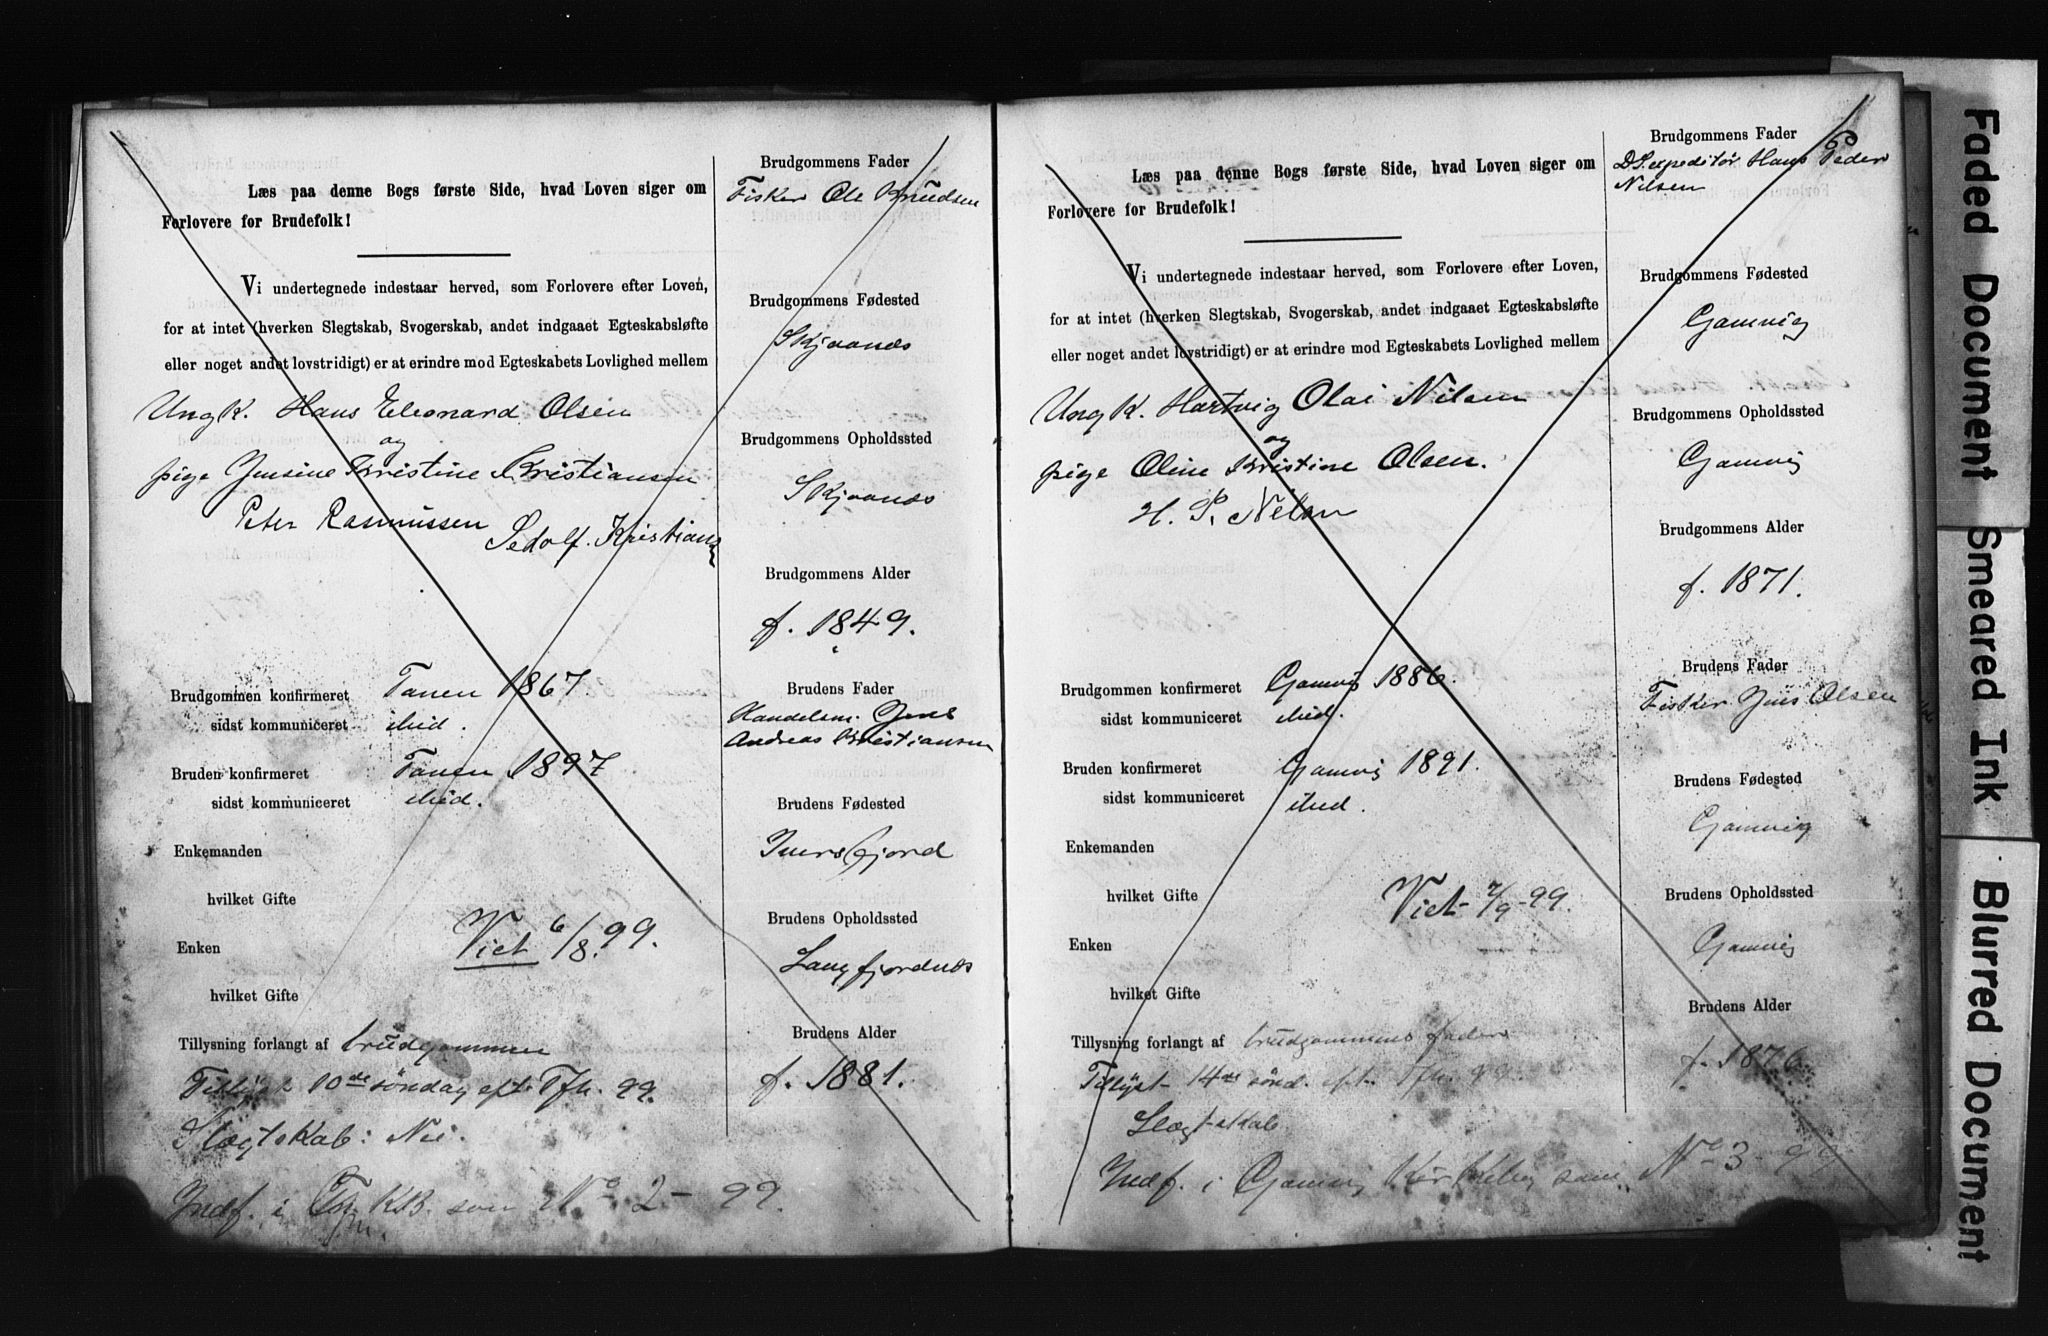 Læs paa denne Bogs første Side, hvad Loven siger om
Forlovere for Brudefolk!
Vi undertegnede indestaar herved, som Forlovere efter Loven,
for at intet (hverken Slegtskab, Svogerskab, andet indgaaet Egteskabsløfte
eller noget andet lovstridigt) er at erindre mod Egteskabets Lovlighed mellem
Ungk. Hans Eleonard Olsen
og
pige Jensine Kristine Kristiansen
Peter Rasmussen
Sedolf. Kristians
Brudgommen konfirmeret Tanen 1867.
sidst kommuniceret ibid.
Bruden konfirmeret Tanen 1897
sidst kommuniceret ibid.
Enkemanden
hvilket Gifte
Viet 6/8. 99.
Enken
hvilket Gifte
Tillysning forlangt af brudgommen
Tillyst 10de søndag eft. Tfh. 99.
Slægtskab: Nei.
Indf. i Tn. KB. som No 2 - 99.
Brudgommens Fader
Fisker Ole Knudsen
Brudgommens Fødested
Skjaanæs
Brudgommens Opholdssted
Skjaanæs
Brudgommens Alder
f. 1849.
Brudens Fader
Handelsm. Jens
Andreas Kristiansen
Brudens Fødested
Iversfjord
Brudens Opholdssted
Langfjordnæs
Brudens Alder
f. 1881.
Læs paa denne Bogs første Side, hvad Loven siger om
Forlovere for Brudefolk!
Vi undertegnede indestaar herved, som Forlovere efter Loven,
for at intet (hverken Slegtskab, Svogerskab, andet indgaaet Egteskabsløfte
eller noget andet lovstridigt) er at erindre mod Egteskabets Lovlighed mellem
Ungk. Hartvig Olai Nilsen
og
pige Oline Kristine Olsen.
H. P. Nilsen
Brudgommen konfirmeret Gamvig 1886.
sidst kommuniceret ibid.
Bruden konfirmeret Gamvig 1891.
sidst kommuniceret ibid.
Enkemanden
hvilket Gifte
Viet 7/9-99.
Enken
hvilket Gifte
Tillysning forlangt af brudgommens fader
Tillyst 14de sønd. eft. Tfh. 99.
Slægtskab
Indf. i Gamvig Kirkebog som No 3 - 99
Brudgommens Fader
D.S.expeditør Hans Peder
Nilsen
Brudgommens Fødested
Gamvig
Brudgommens Opholdssted
Gamvig
Brudgommens Alder
f. 1871.
Brudens Fader
Fisker Jens Olsen
Brudens Fødested
Gamvig
Brudens Opholdssted
Gamvig
Brudens Alder
f. 1876.
Faded Document
Smeared Ink
Blurred Document